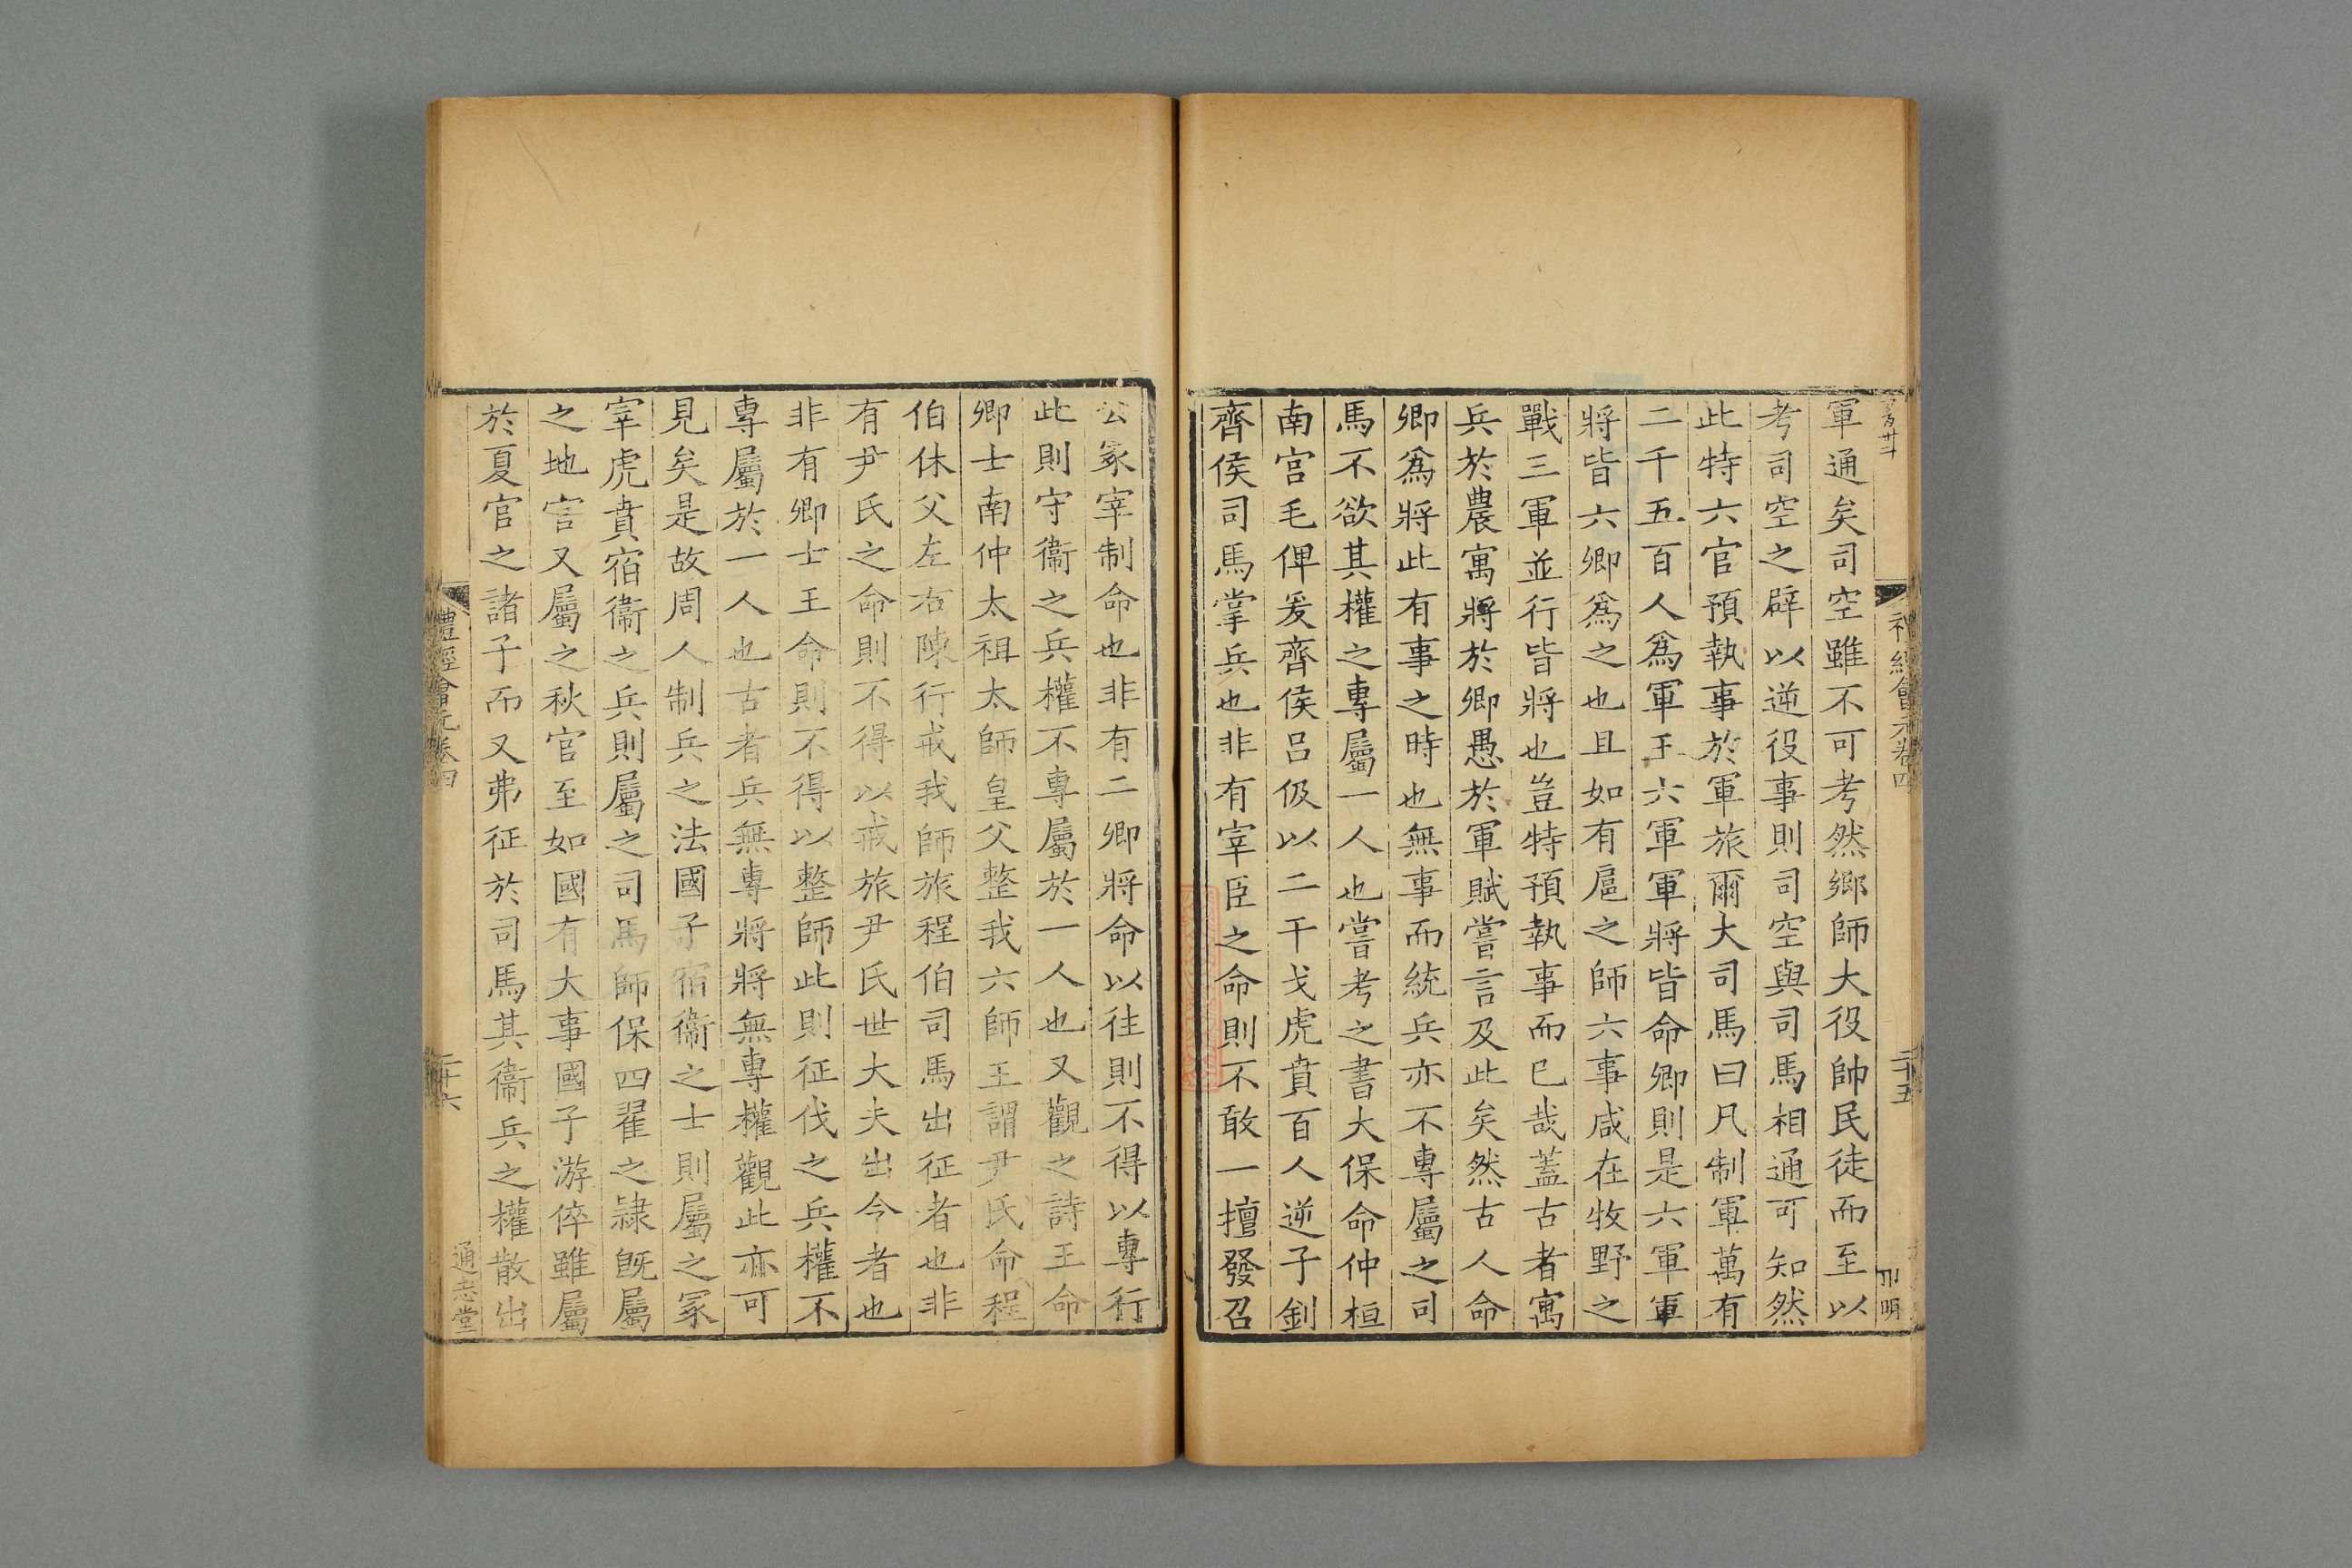 軍通矣司空雖不可考然鄉師大役帥民徒而至以
考司空之辟以逆役事則司空與司馬相通可知然
此特六官預執事於軍旅爾大司馬曰凡制軍萬有
二千五百人為軍王六軍軍將皆命卿則是六軍軍
將皆六卿為之也且如有扈之師六事咸在牧野之
戰三軍並行皆將也豈特預執事而已哉蓋古者寓
兵於農寓將於卿愚於軍賦嘗言及此矣然古人命
卿為將此有事之時也無事而統兵亦不專屬之司
馬不欲其權之專屬一人也嘗考之書大保命仲桓
南宮毛俾爰齊侯呂伋以二干戈虎賁百人逆子釗
齊侯司馬掌兵也非有宰臣之命則不敢一擅發召
禮經會元卷四
二十五
公冢宰制命也非有二卿將命以往則不得以專行
此則守衞之兵權不專屬於一人也又觀之詩王命
卿士南仲太祖太師皇父整我六師王謂尹氏命程
伯休父左右陳行戒我師旅程伯司馬出征者也非
有尹氏之命則不得以戒旅尹氏世大夫出令者也
非有卿士王命則不得以整師此則征伐之兵權不
專屬於一人也古者兵無專將將無專權觀此亦可
見矣是故周人制兵之法國子宿衞之士則屬之冢
宰虎賁宿衞之兵則屬之司馬師保四翟之隷既屬
之地官又屬之秋官至如國有大事國子游倅雖屬
於夏官之諸子而又弗征於司馬其衞兵之權散出
禮經會元卷四
二十六
通志堂